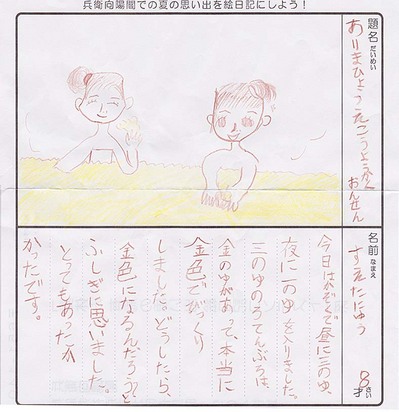 兵衛向陽閣での夏の思い出を絵日記にしよう！
題名
だいめい
ありまひょうえこうようかく
おんせん
名前
なまえ
すえたにゆう
8才
さい
今日はかぞくで昼に三のゆ、
夜に二のゆを入りました。
三のゆのろてんぶろは、
金のゆがあって、本当に
金色でびっくり
しました。どうしたら、
金色になるんだろう?と
ふしぎに思いました。
とってもあったか
かったです。